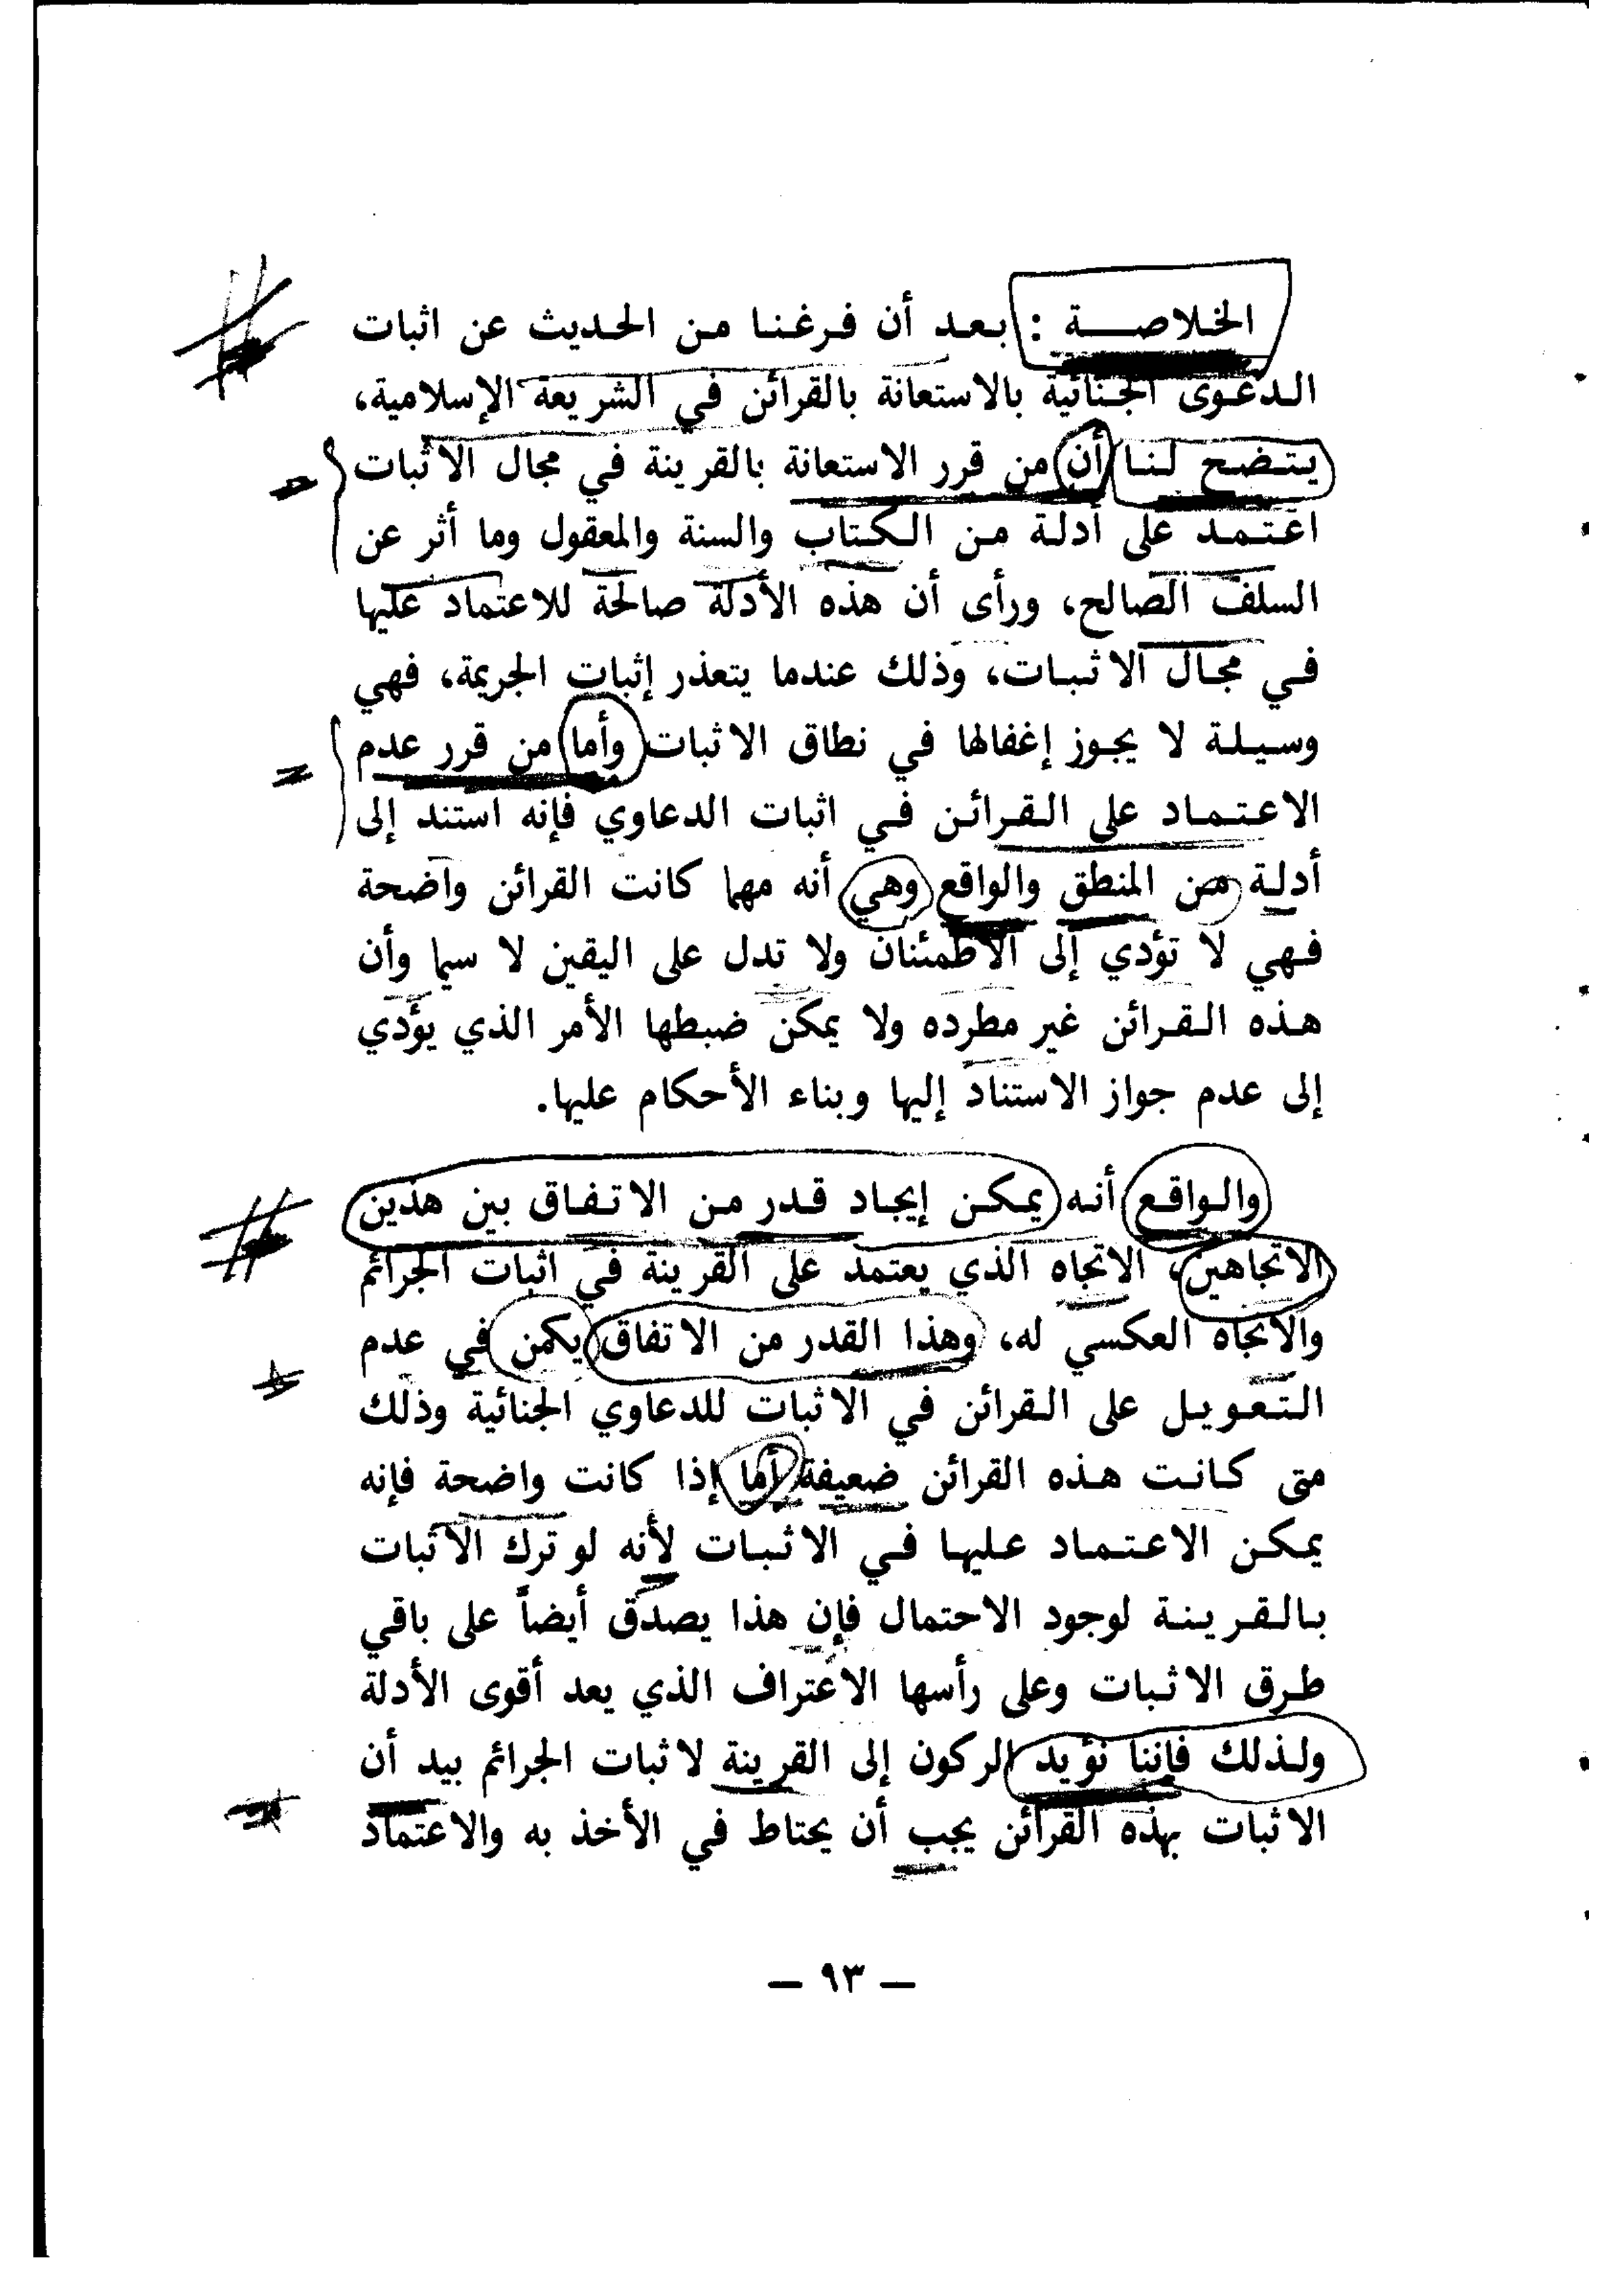 الخلاصة : بعد أن فرغنا من الحديث عن اثبات
الدعوى الجنائية بالاستعانة بالقرائن في الشريعة الإسلامية،
يتضح لنا أن من قرر الاستعانة بالقرينة في مجال الاثبات
اعتمد على أدلة من الكتاب والسنة والمعقول وما أثر عن
السلف الصالح، ورأى أن هذه الأدلة صالحة للاعتماد عليها
في مجال الاثبات، وذلك عندما يتعذر إثبات الجريمة، فهي
وسيلة لا يجوز إغفالها في نطاق الاثبات وأما من قرر عدم
الاعتماد على القرائن في اثبات الدعاوي فإنه استند إلى
أدلة من المنطق والواقع وهي أنه مهما كانت القرائن واضحة
فهي لا تؤدي إلى الاطمئنان ولا تدل على اليقين لا سيما وأن
هذه القرائن غير مطرده ولا يمكن ضبطها الأمر الذي يؤدي
إلى عدم جواز الاستناد إليها وبناء الأحكام عليها.
والواقع أنه يمكن إيجاد قدر من الاتفاق بين هذين
الاتجاهين، الاتجاه الذي يعتمد على القرينة في اثبات الجرائم
والاتجاه العكسي له، وهذا القدر من الاتفاق يكمن في عدم
التعويل على القرائن في الاثبات للدعاوي الجنائية وذلك
متى كانت هذه القرائن ضعيفة أما إذا كانت واضحة فإنه
يمكن الاعتماد عليها في الاثبات لأنه لو ترك الاثبات
بالقرينة لوجود الاحتمال فإن هذا يصدق أيضاً على باقي
طرق الاثبات وعلى رأسها الاعتراف الذي يعد أقوى الأدلة
ولذلك فإننا نؤيد الركون إلى القرينة لاثبات الجرائم بيد أن
الاثبات بهذه القرائن يجب أن يحتاط في الأخذ به والاعتماد
— ٩٣ —